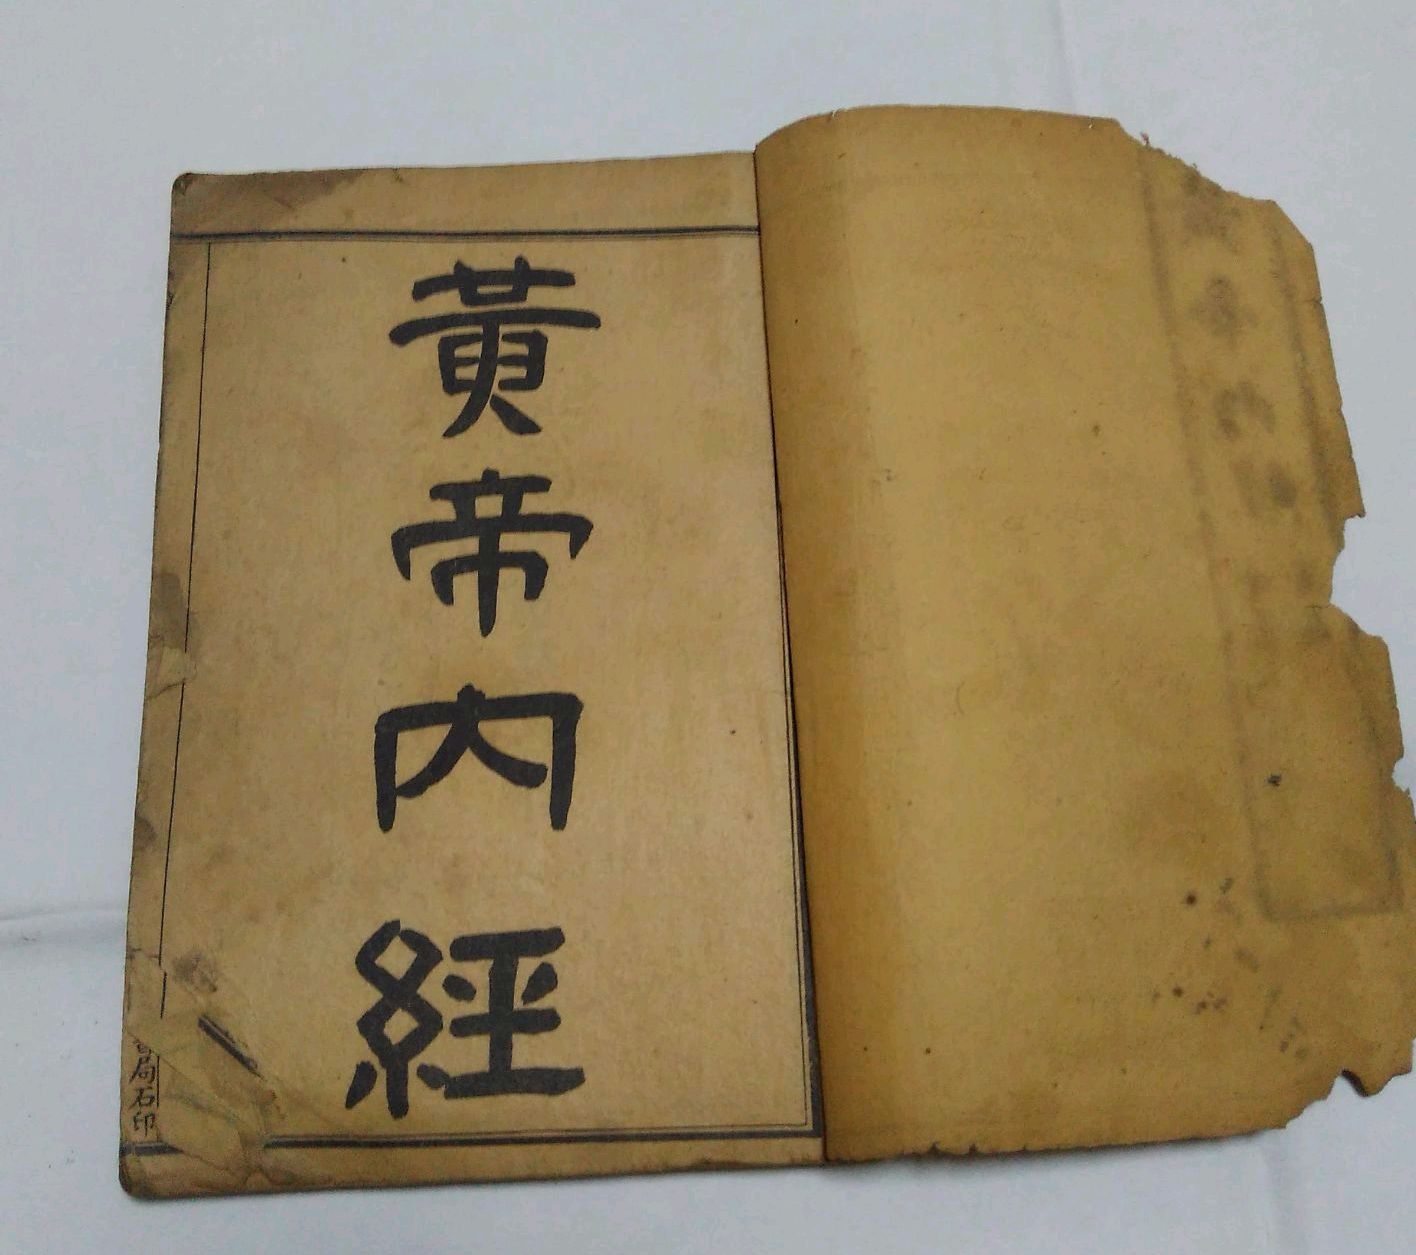 黃帝內經
書局石印